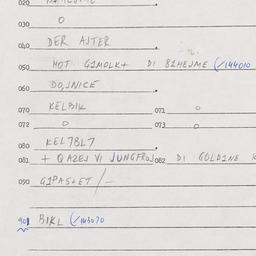 030 0
040 DER AJTER
050 HOT G1MOLK+ DI B2HEJME (/144010
060 DOJNICE
070 KELBIK 071 0
072 0 073 0
080 KEL7BL7
081 + QAZEJ VI JUNGFROJ 082 DI GOLD2NE K
090 G2PAS+ET/-
901 BIKL (/143070